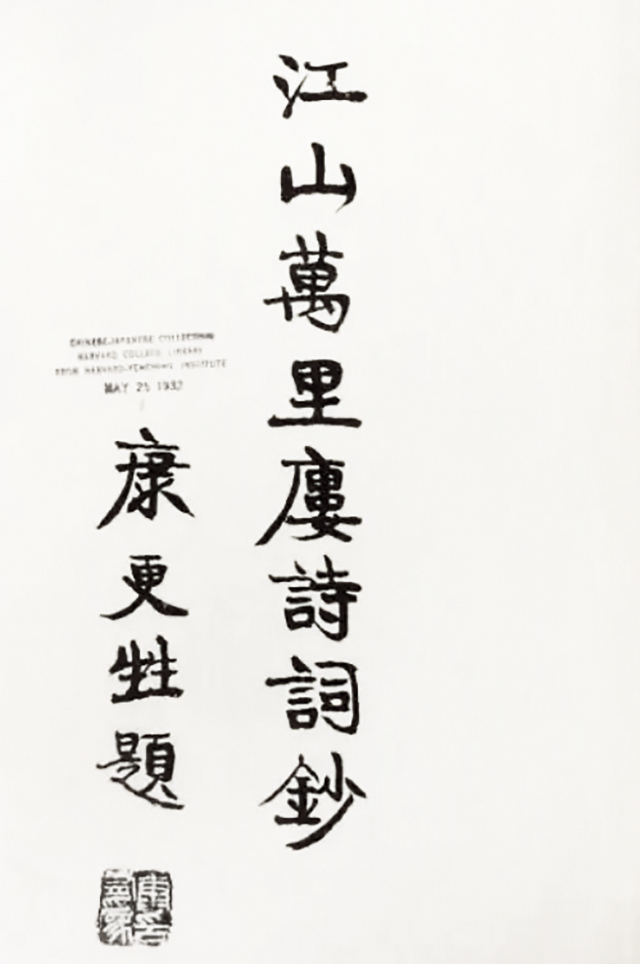 江山萬里廔詩詞鈔
CHINESE-JAPANESE COLLECTION
HARVARD COLLEGE LIBRARY
FROM HARVARD-YENCHING INSTITUTE
MAY 25 1932
康更甡題